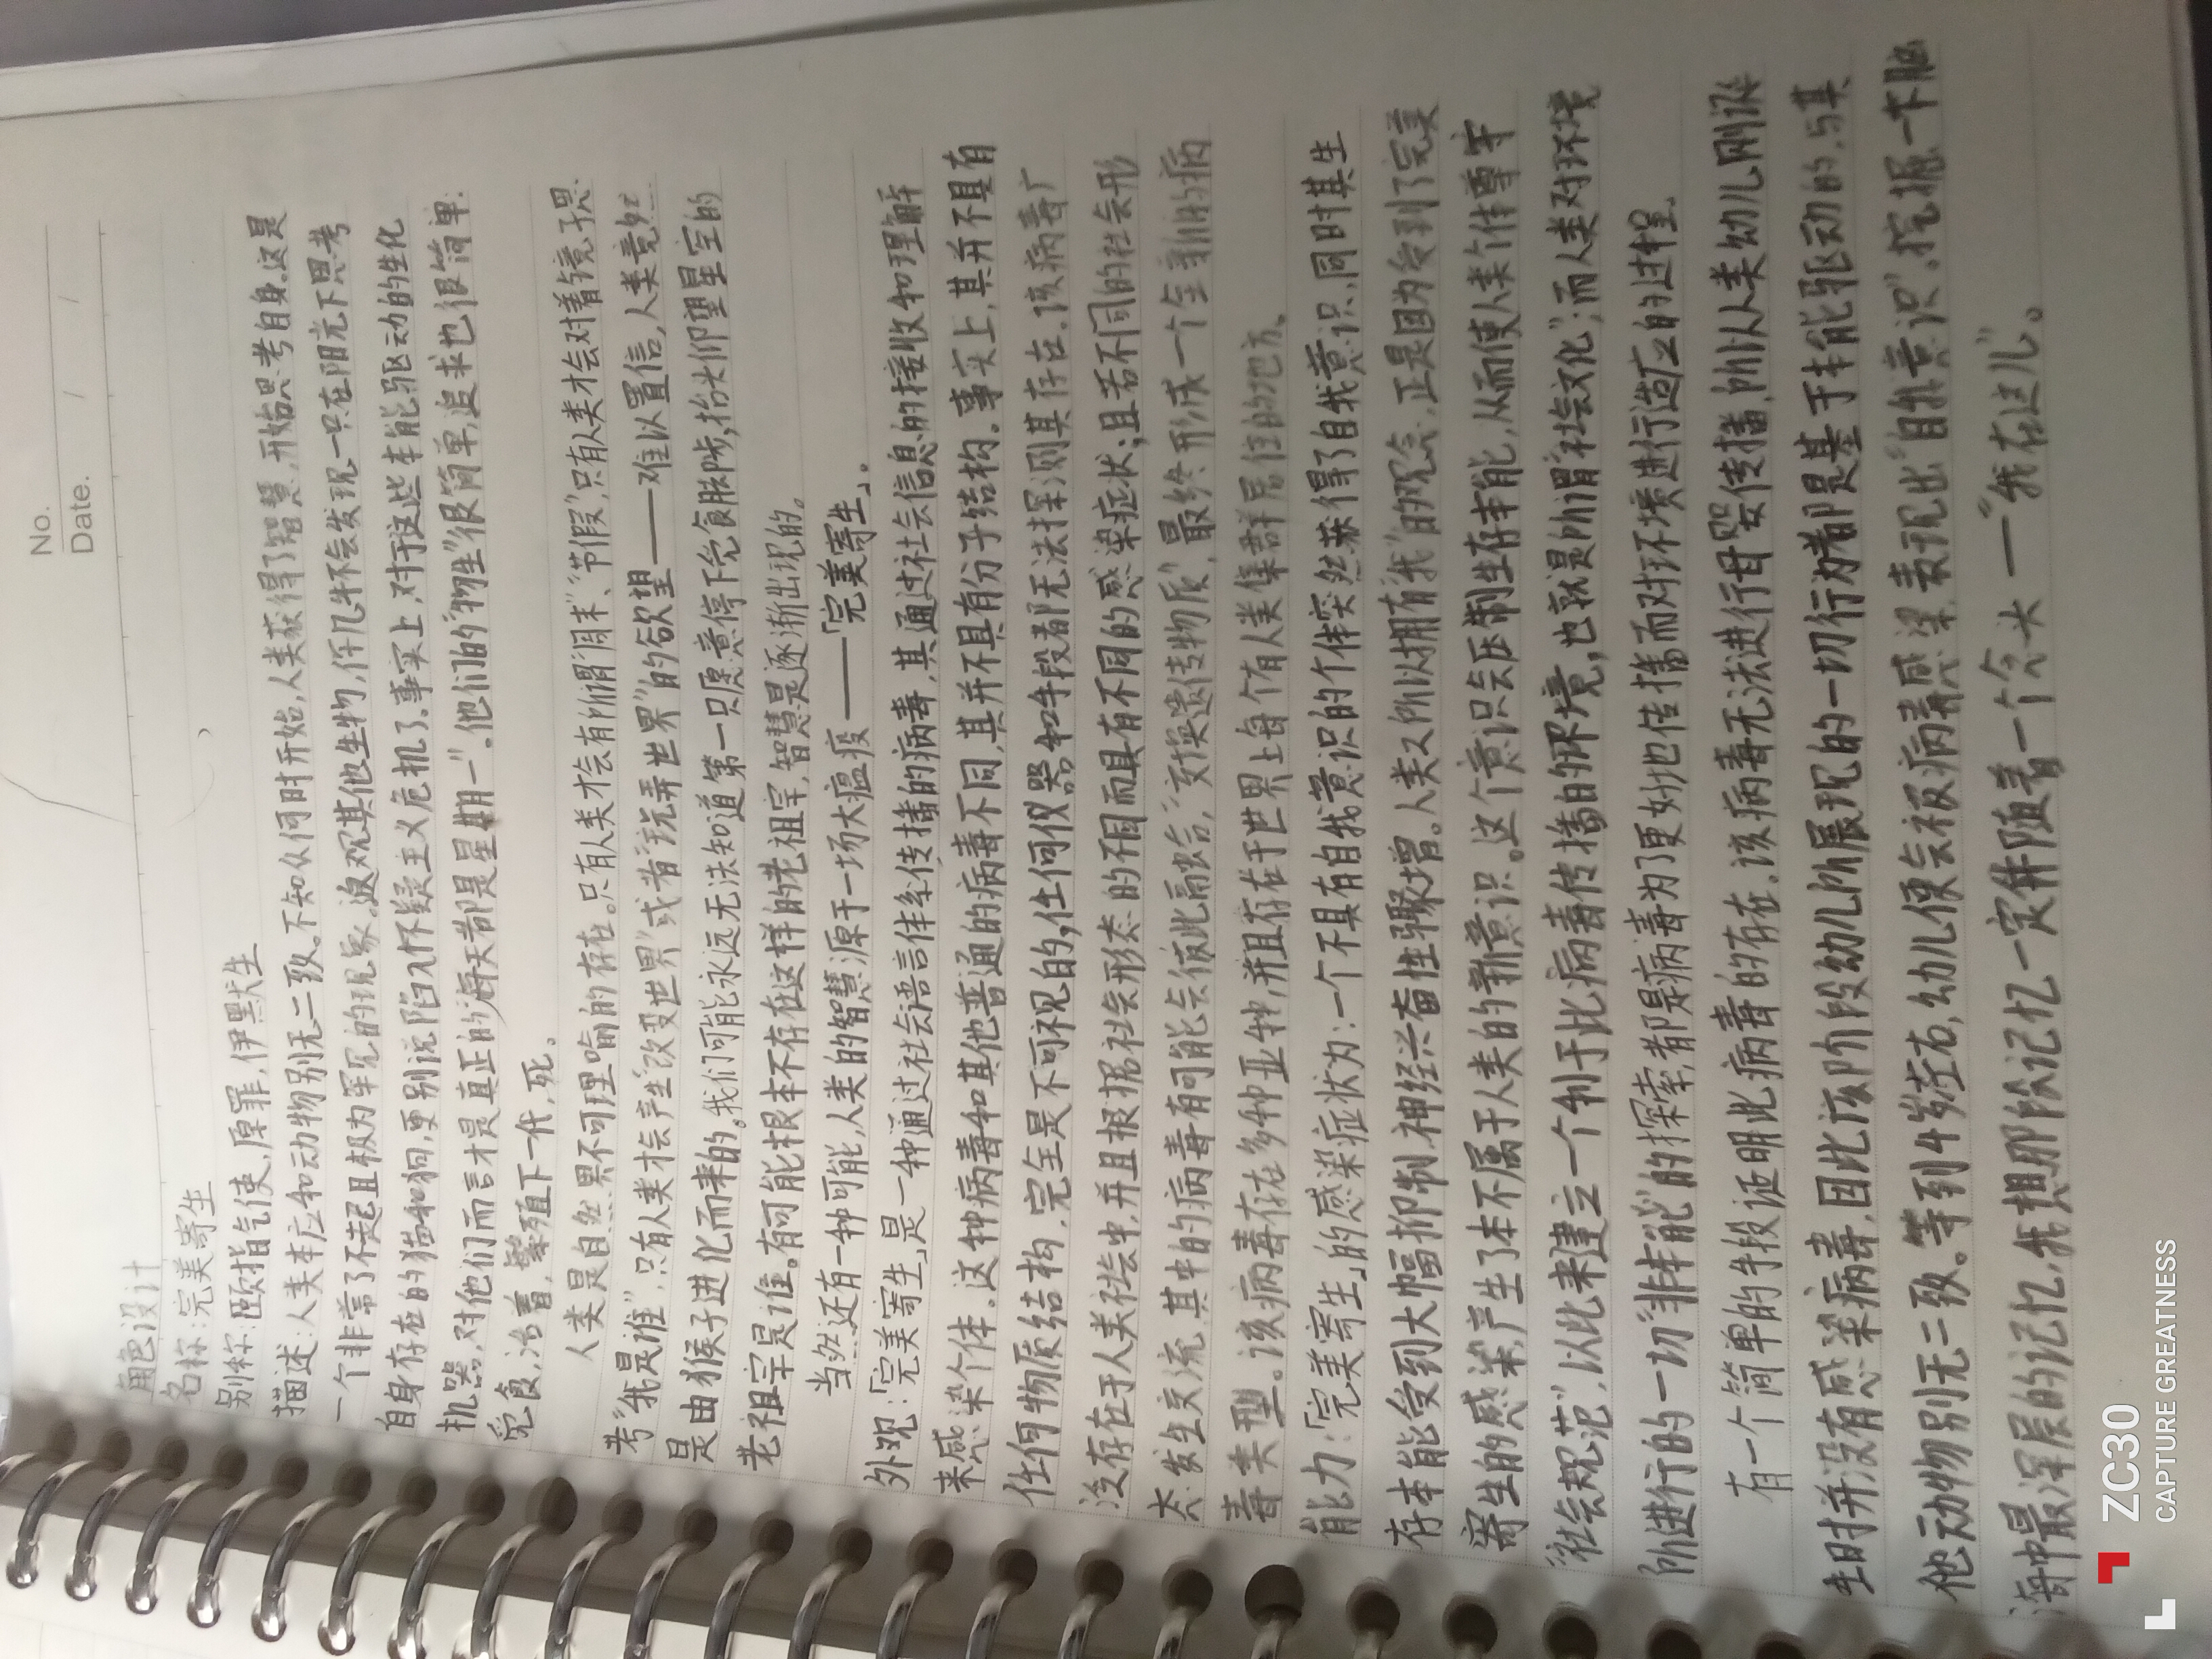 No.
Date. / /
角色设计
名称:完美寄生
别称:颐指气使,原罪,伊默生
描述:人类本应和动物别无二致。不知从何时开始,人类获得了智慧,开始思考自身.这是
一个非常了不起且极为罕见的现象。返观其他生物,任几牛不会发现一只在阳光下思考
自身存在的猫和狗,更别说陷入怀疑主义危机了。事实上,对于这些本能驱动的生化
机器,对他们而言才是真正的“每天都是星期一”.他们的“物生”很简单,追求也很简单:
觅食,活着,繁殖下一代,死。
人类是自然界不可理喻的存在。只有人类才会有所谓“周末”、“节假”,只有人类才会对着镜子思
考“我是谁”,只有人类才会产生“改变世界”或者“玩弄世界”的欲望——难以置信,人类竟然
是由猴子进化而来的。我们可能永远无法知道第一只愿意停下觅食脚步,抬头仰望星空的
老祖宗是谁。有可能根本不存在这样的老祖宗,智慧是逐渐出现的。
当然还有一种可能,人类的智慧源于一场大瘟疫——「完美寄生」。
外观:「完美寄生」是一种通过社会语言体系传播的病毒,其通过社会信息的接收和理解
来感染个体。这种病毒和其他普通的病毒不同,其并不具有分子结构。事实上,其并不具有
任何物质结构,完全是不可视见的,任何仪器和手段都无法探测其存在.该病毒广
泛存在于人类社会中,并且根据社会形态的不同而具有不同的感染症状;且若不同的社会形
态发生交流,其中的病毒有可能会彼此融合,“交换遗传物质”,最终形成一个全新的病
毒类型。该病毒存在多种亚种,并且存在于世界上每个有人类集群居住的地方、
能力:「完美寄生」的感染症状为:一个不具有自我意识的个体突然获得了自我意识,同时其生
存本能受到大幅抑制,神经兴奋性骤增。人类之所以拥有“我”的观念,正是因为受到了完美
寄生的感染,产生了本不属于人类的新意识。这个意识会压制生存本能,从而使人类个体遵守
“社会规范”,以此来建立一个利于此病毒传播的环境,也就是所谓“社会文化”;而人类对环境
所进行的一切“非本能”的探索,都是病毒为了更好地传播而对环境进行适应的过程.
有一个简单的手段证明此病毒的存在.该病毒无法进行母婴传播,所以人类幼儿刚诞
生时并没有感染病毒,因此该阶段幼儿所展现的一切行为都是基于本能驱动的,与其
他动物别无二致。等到4岁左右,幼儿便会被病毒感染,表现出“自我意识”.挖掘一下脑
海中最深层的记忆,我想那段记忆一定伴随着一个念头——“我在这儿”。
ZC30
CAPTURE GREATNESS